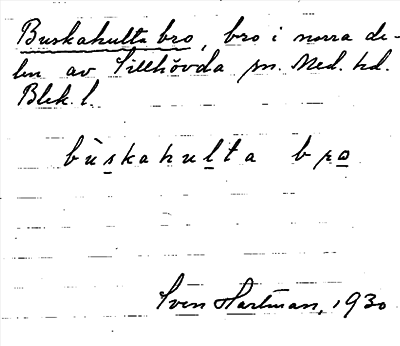 Buskahulta bro, bro i norra de-
len av Tillhövda sn. Med. hd.
Blek. l.
bùskahulta bro
Sven Hartman, 1930